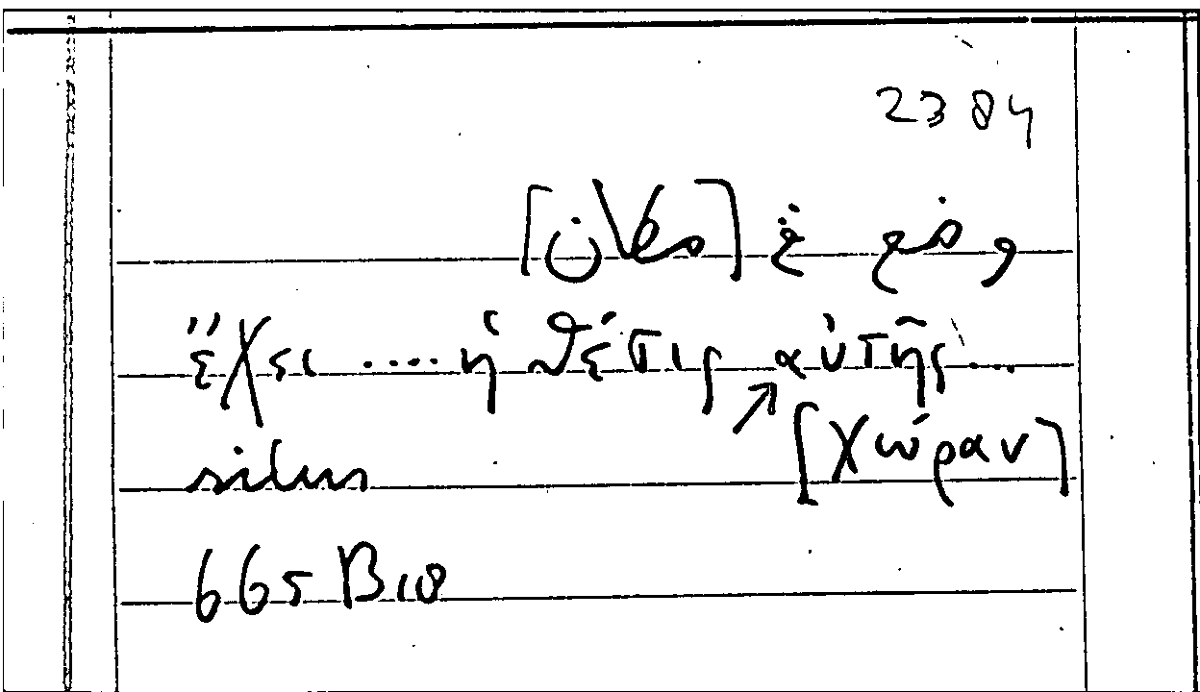 2384
وضع غ [مكان]
ἔχει .... ἡ θέσις αὐτῆς ...
situs [χώραν]
665 B 18